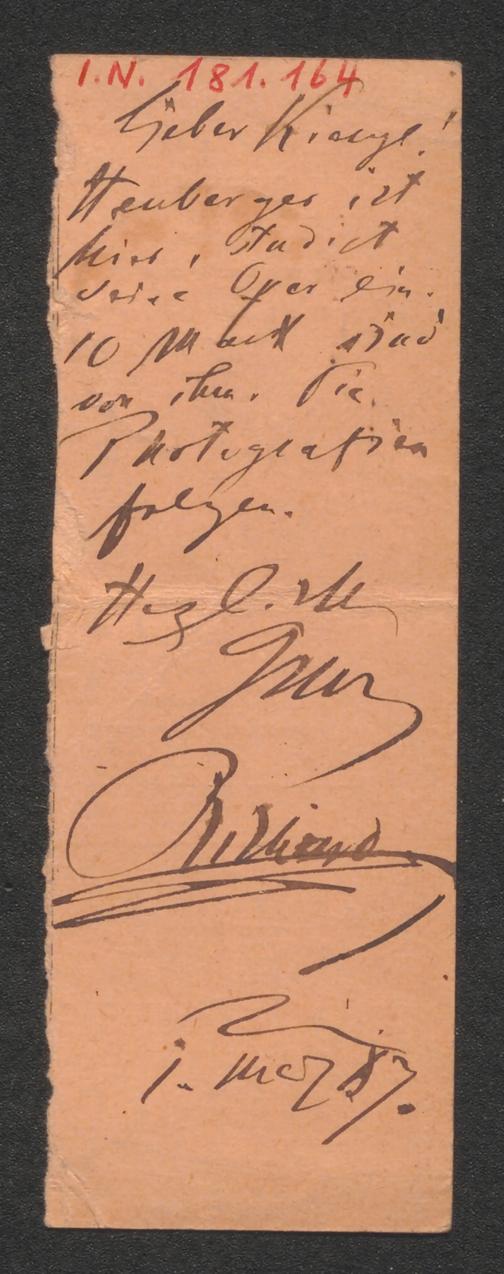 I.N. 181.164
Lieber Kienzl!
Heuberger ist
hier, studiert
seine Oper ein.
10 Mark sind
von ihm. Die
Photografien
folgen.
Herzlichst
Richard
1. März 87.